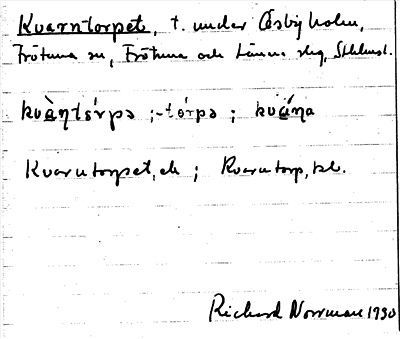 Kvarntorpet, t. under Össbyholm,
Frötuna sn, Frötuna och Länna skg, Sthlmsl.
kvàɳtórpə ; -tórpə ; kvá́ɳa
Kvarntorpet, ek ; Kvarntorp, bl.
Richard Norrman 1930